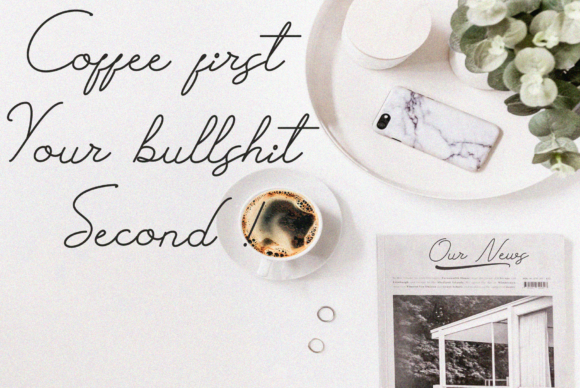 Coffee first
Your bullshit
Second !
Our News